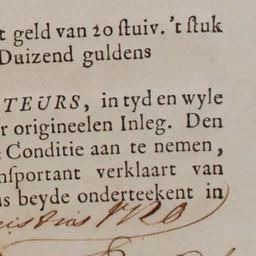 t geld van 20 ſtuiv. 't ſtuk
Duizend guldens
TEURS, in tyd en wyle
r origineelen Inleg. Den
Conditie aan te nemen,
nſportant verklaart van
s beyde onderteekent in
1720